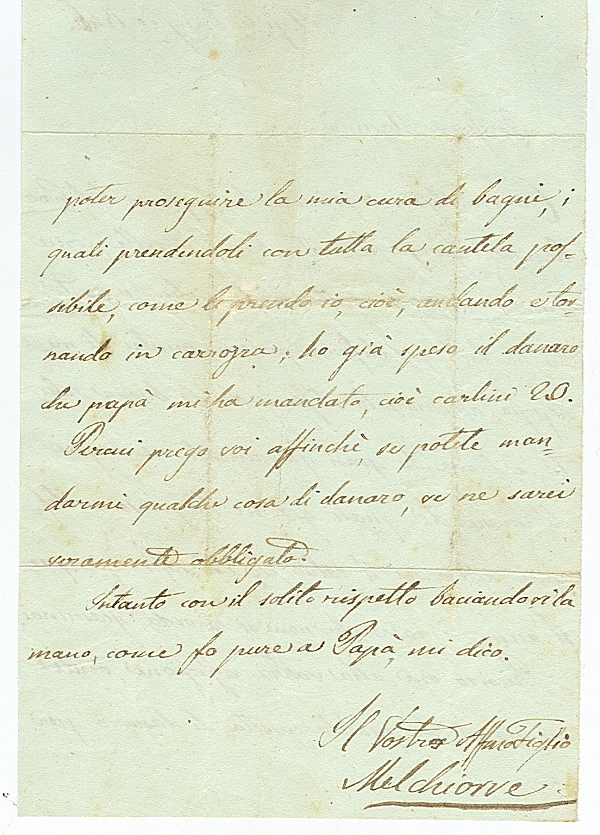 poter proseguire la mia cura di bagni, i
quali prendendoli con tutta la cautela pos-
sibile, come li prendo io, cioè, andando e tor-
nando in carrozza; ho già speso il danaro
che papà mi ha mandato, cioè carlini 20.
Percui prego voi affinchè, se potete man-
darmi qualche cosa di danaro, ve ne sarei
veramente obbligato.
Intanto con il solito rispetto baciandovi la
mano, come fo pure a Papà, mi dico.
Il Vostro Affmo Figlio
Melchiorre